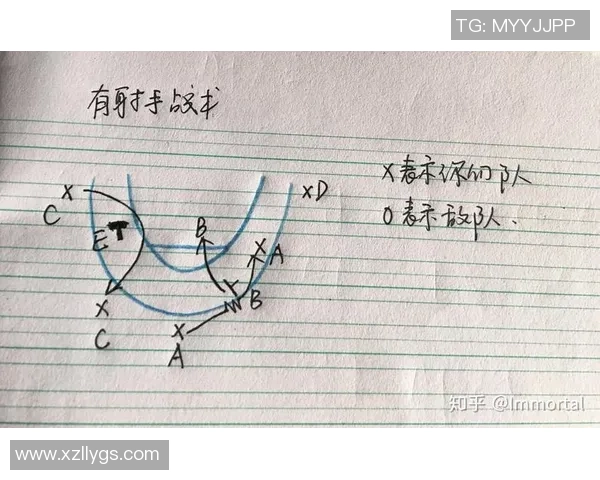 TG: MYYJJPP
有射手战术
X表示你的队
O表示敌队.
X
C
E
B
X
A
XD
X
C
X
A
B
知乎 @Immortal
www.xzllygs.com